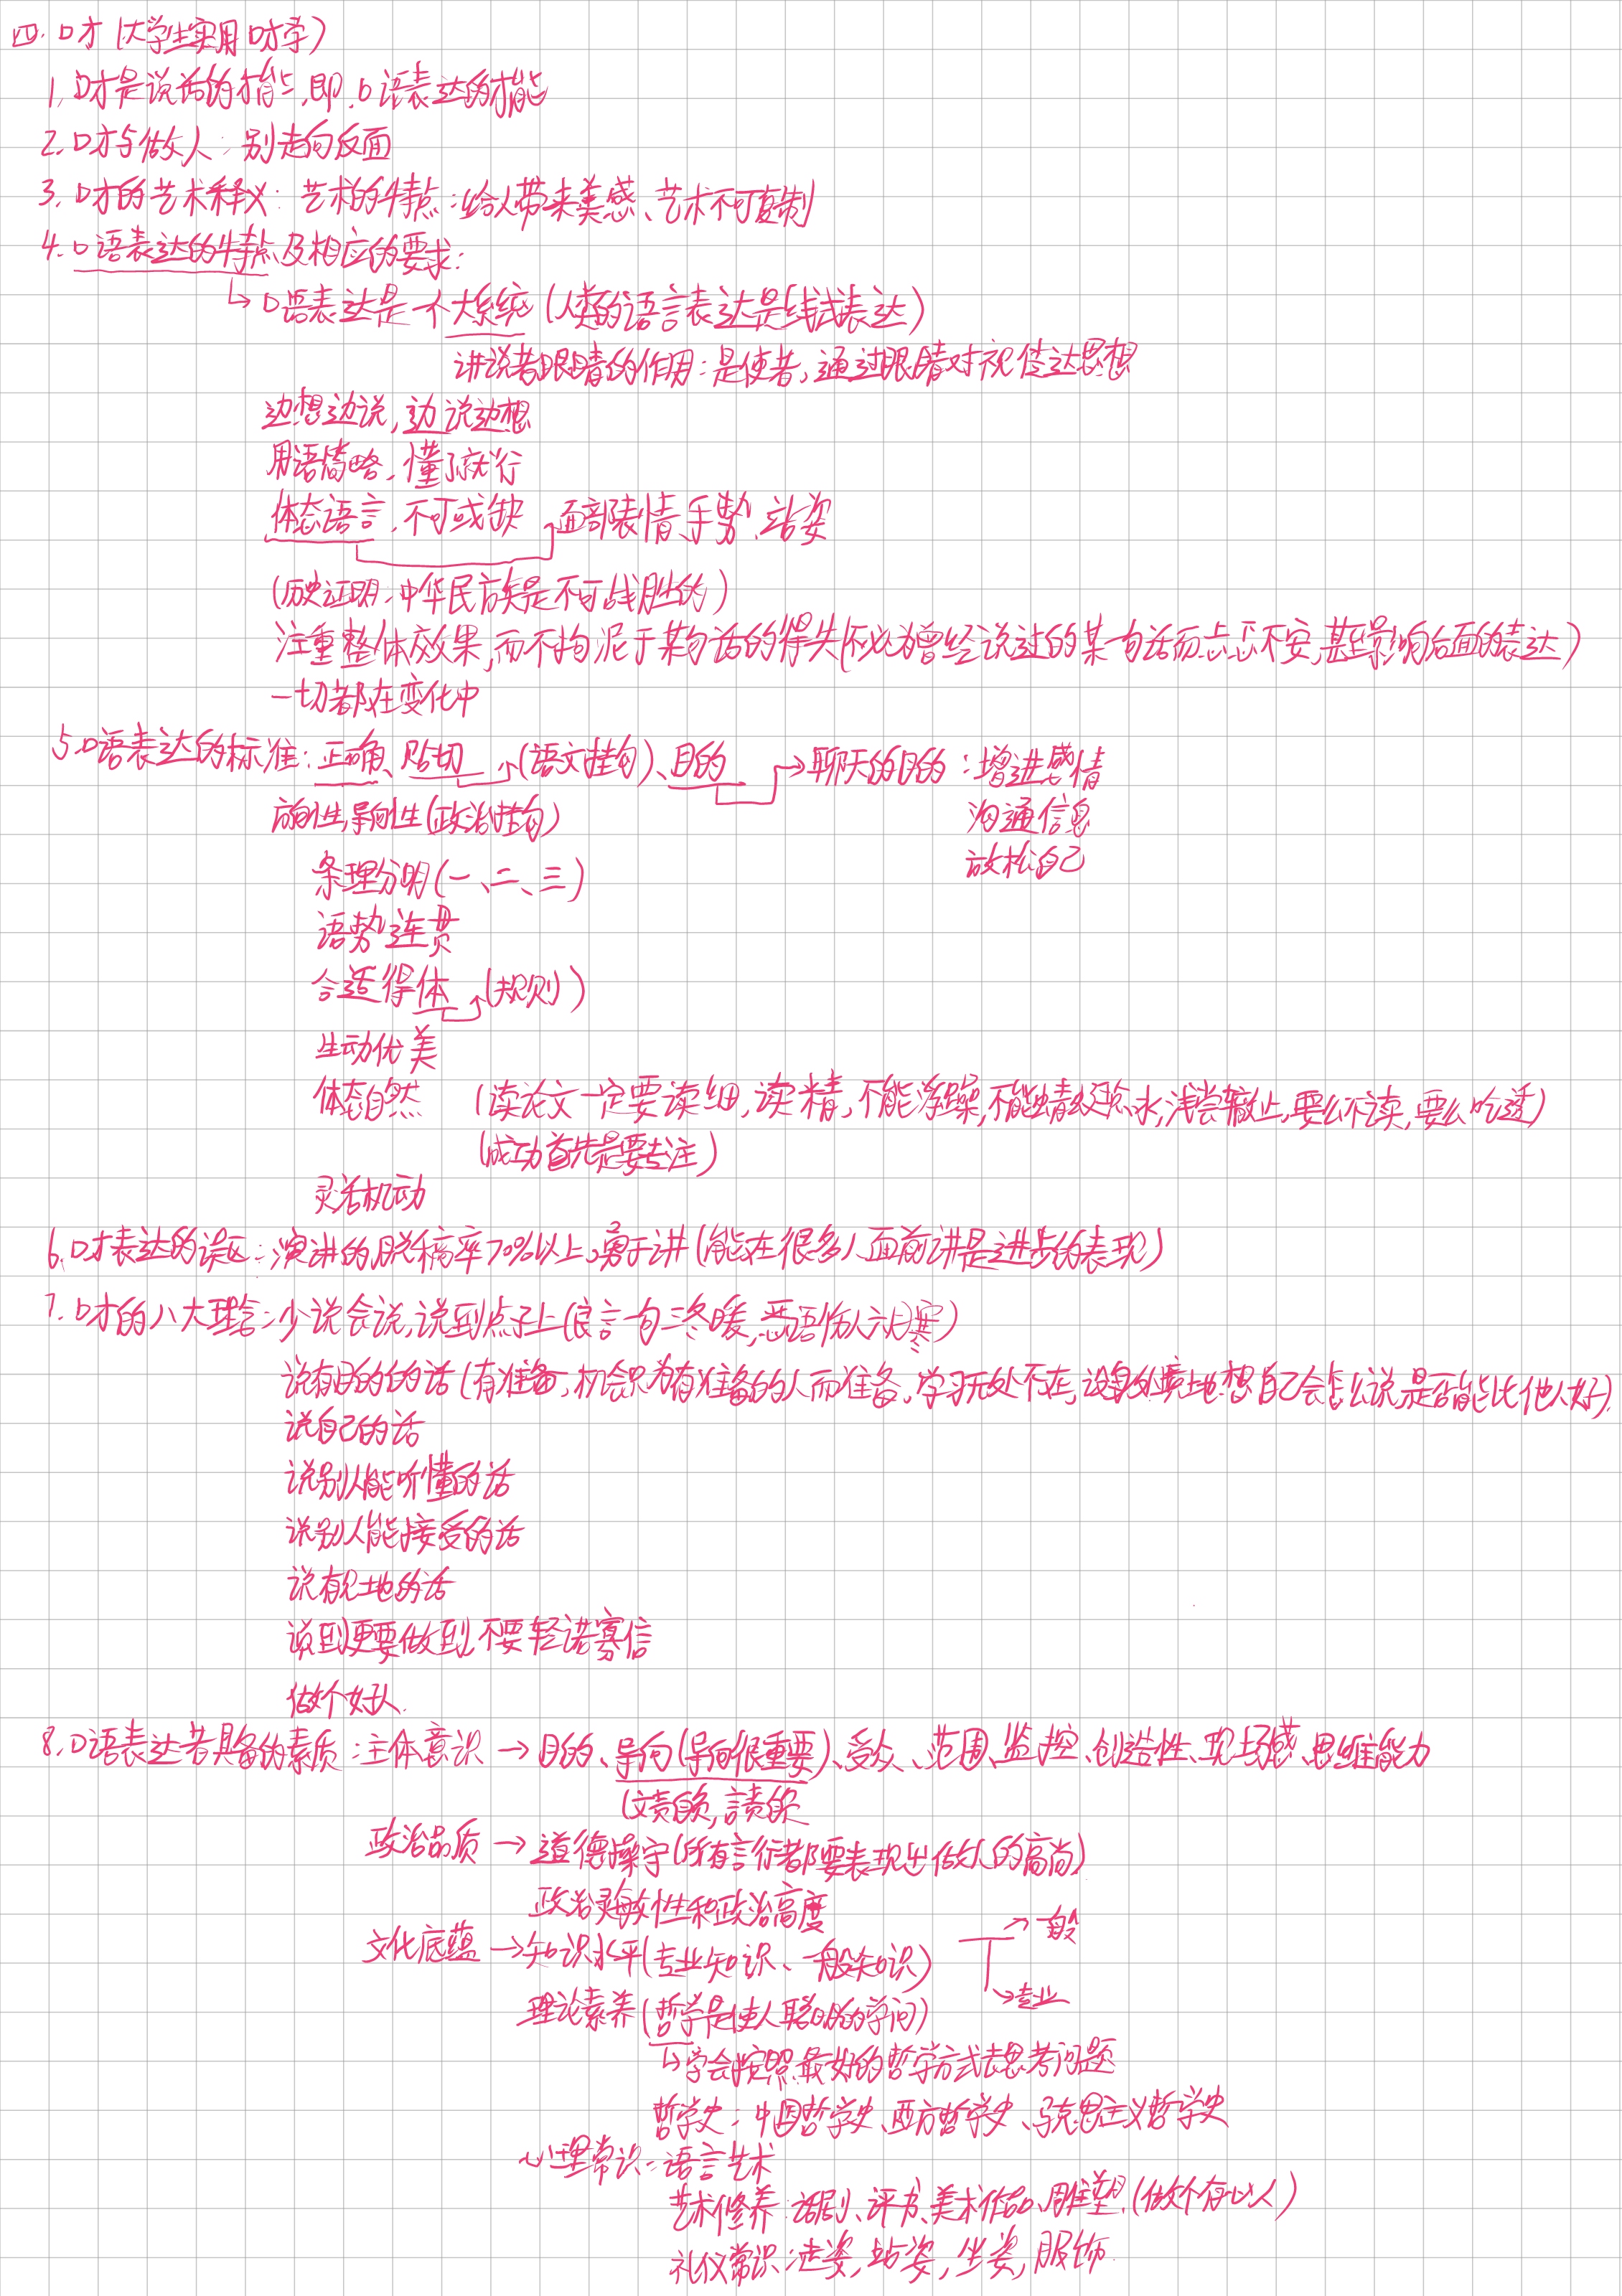 四.口才(大学生实用口才学)
1.口才是说话的才能,即.口语表达的才能
2.口才与做人:别走向反面
3.口才的艺术释义:艺术的特点:给人带来美感、艺术不可复制
4.口语表达的特点及相应的要求:
↳口语表达是一个大系统(人类的语言表达是线式表达)
讲说者眼睛的作用:是使者,通过眼睛对视传达思想
边想边说,边说边想
用语简略,懂了就行
体态语言,不可或缺 面部表情、手势、站姿
(历史证明:中华民族是不可战胜的)
注重整体效果,而不拘泥于某句话的得失(不必为曾经说过的某一句话而忐忑不安,甚至影响后面的表达)
一切都在变化中
5.口语表达的标准:正确、贴切(语文挂钩)、目的→聊天的目的:增进感情
方向性,导向性(政治挂钩) 沟通信息
放松自己
条理分明(一、二、三)
语势连贯
合适得体(规则)
生动优美
体态自然 (读论文一定要读细,读精,不能浮躁,不能蜻蜓点水,浅尝辄止,要么不读,要么吃透)
(成功首先是要专注)
灵活机动
6.口才表达的误区:演讲的脱稿率70%以上,勇于讲(能在很多人面前讲是进步的表现)
7.口才的八大理念:少说会说,说到点子上(良言一句三冬暖,恶语伤人六月寒)
说有目的的话(有准备,机会只为有准备的人而准备,学习无处不在,设身处境地想自己会怎么说,是否能比他人好)
说自己的话
说别人能听懂的话
说别人能接受的话
说有见地的话
说到更要做到,不要轻诺寡信
做个好人.
8.口语表达者具备的素质:主体意识→目的、导向(导向很重要)、受众、范围、监控、创造性、现场感、思维能力
(文责自负,言责自负
政治品质→道德操守(所有言行都要表现出做人的高尚)
政治灵敏性和政治高度
文化底蕴→知识水平(专业知识、一般知识) →一般
→专业
理论素养(哲学是使人聪明的学问)
↳学会按照最好的哲学方式去思考问题
哲学史:中国哲学史、西方哲学史、马克思主义哲学史
心理常识:语言艺术
艺术修养:话剧、评书、美术作品、雕塑.(做个有心人)
礼仪常识:走姿,站姿,坐姿,服饰.